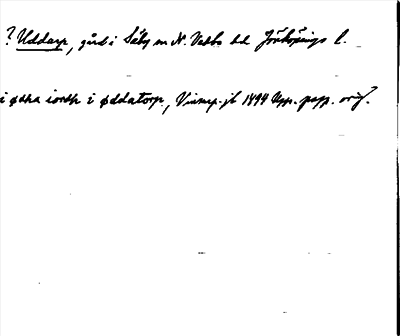 ? Uddarp, gård i Säby sn N. Vedbo hd Jönköpings l.
i ødha iordh i øddatorp, Vinnep.jb 1494 Upp. papp. orig.